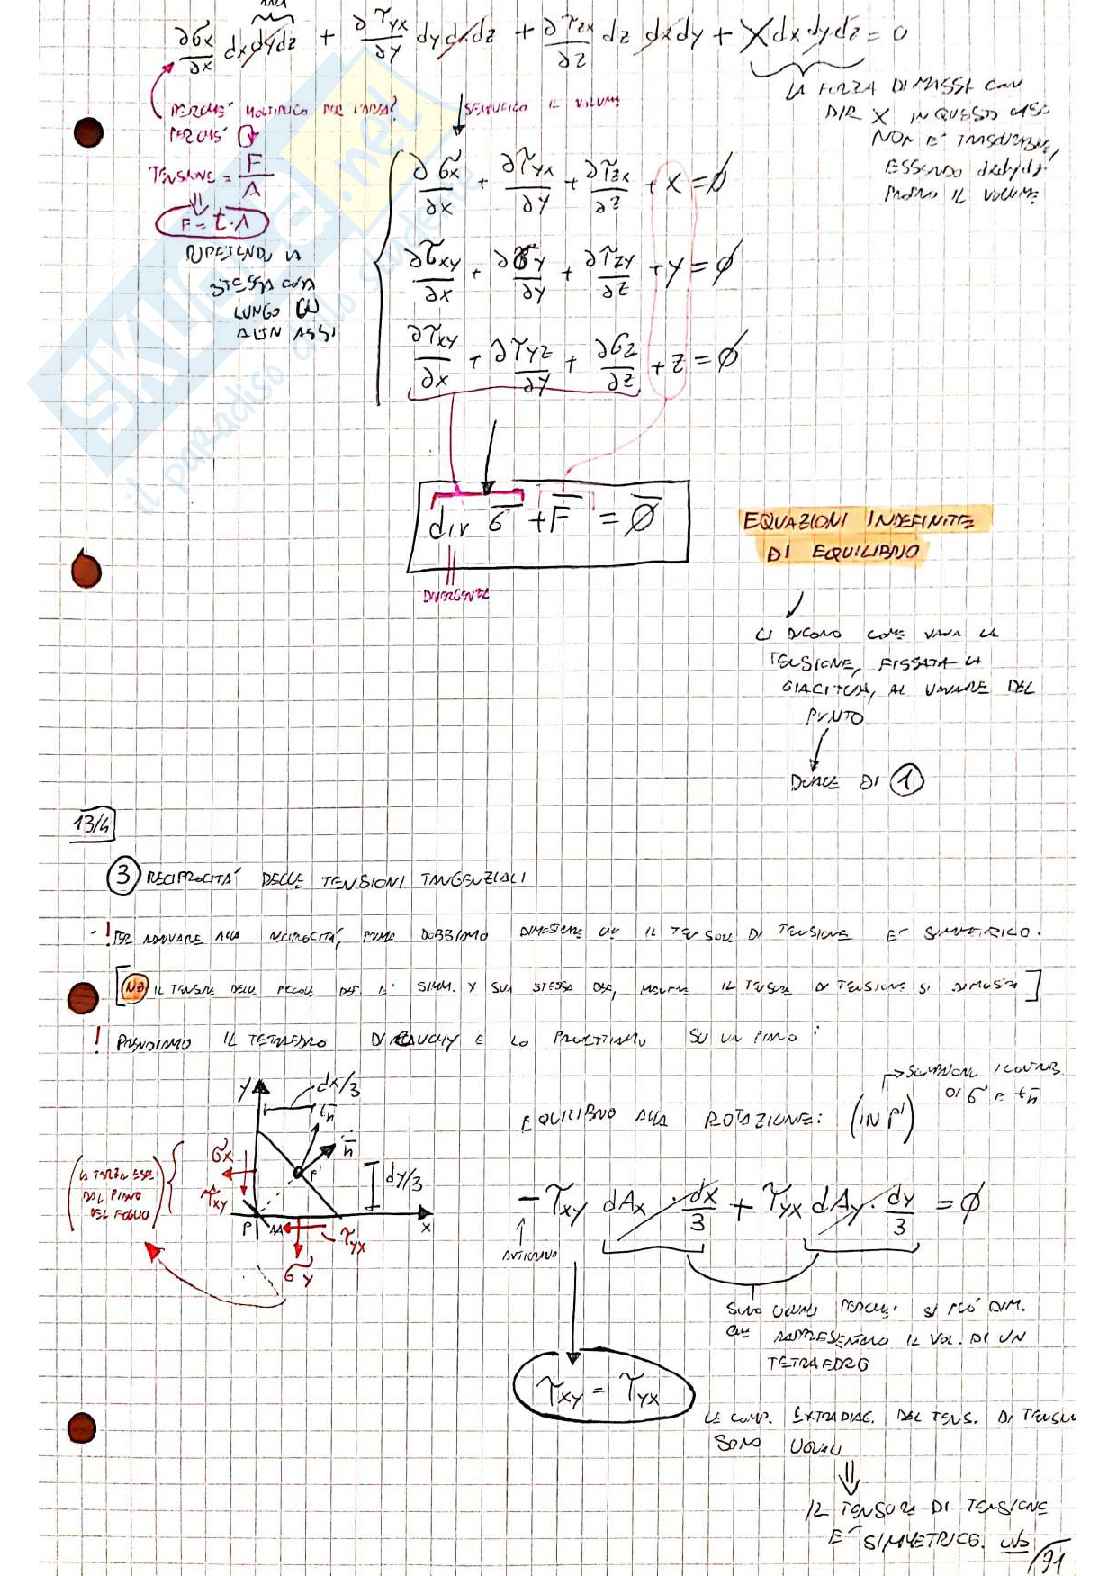 AREA
∂σx/∂x dxdydz + ∂τyx/∂y dydxdz + ∂τzx/∂z dz dxdy + X dxdydz = 0
PERCHÉ MOLTIPLICO PER L'AREA?
PERCHÉ
TENSIONE = F/A
⇓
F = t·A
RIPETENDO LA
STESSA COSA
LUNGO GLI
ALTRI ASSI
SEMPLIFICO IL VOLUME
LA FORZA DI MASSA CON
DIR X IN QUESTO CASO
NON E' TRASCURABILE,
ESSENDO dxdydz
PROPRIO IL VOLUME
∂σx/∂x + ∂τyx/∂y + ∂τzx/∂z + X = Ø
∂σxy/∂x + ∂σy/∂y + ∂τzy/∂z + Y = Ø
∂τxy/∂x + ∂τyz/∂y + ∂σz/∂z + Z = Ø
div σ + F = Ø
DIVERGENTE
EQUAZIONI INDEFINITE
DI EQUILIBRIO
CI DICONO COME VARIA LA
TENSIONE, FISSATA LA
GIACITURA, AL VARIARE DEL
PUNTO
DUALE DI 1
13/4
3 RECIPROCITÁ DELLE TENSIONI TANGENZIALI
- ! PER ARRIVARE ALLA RECIPROCITÁ, PRIMA DOBBIAMO DIMOSTRARE CHE IL TENSORE DI TENSIONE E' SIMMETRICO.
[NB IL TENSORE DELLE PICCOLE DEF. È SIMM. X SUA STESSA DEF, MENTRE IL TENSORE DI TENSIONE SI DIMOSTRA]
! PRENDIAMO IL TETRAEDRO DI CAUCHY E LO PROIETTIAMO SU UN PIANO:
y
dx/3
tn
n
σx
τxy
P'
dy/3
P
x
τyx
σy
(LA TERZA ESCE
DAL PIANO
DEL FOGLIO)
EQUILIBRIO ALLA ROTAZIONE: (IN P')
SCOMPAIONO I CONTRIB.
DI σ E tn
-τxy dAx · dx/3 + τyx dAy · dy/3 = Ø
ANTIORARIO
SONO UGUALI PERCHE' SI PUÓ DIM.
CHE RAPPRESENTANO IL VOL. DI UN
TETRAEDRO
τxy = τyx
LE COMP. EXTRADIAG. DEL TENS. DI TENSION
SONO UGUALI
⇓
IL TENSORE DI TENSIONE
E' SIMMETRICO.
31
SKUOLA.net
il paradiso dello studente